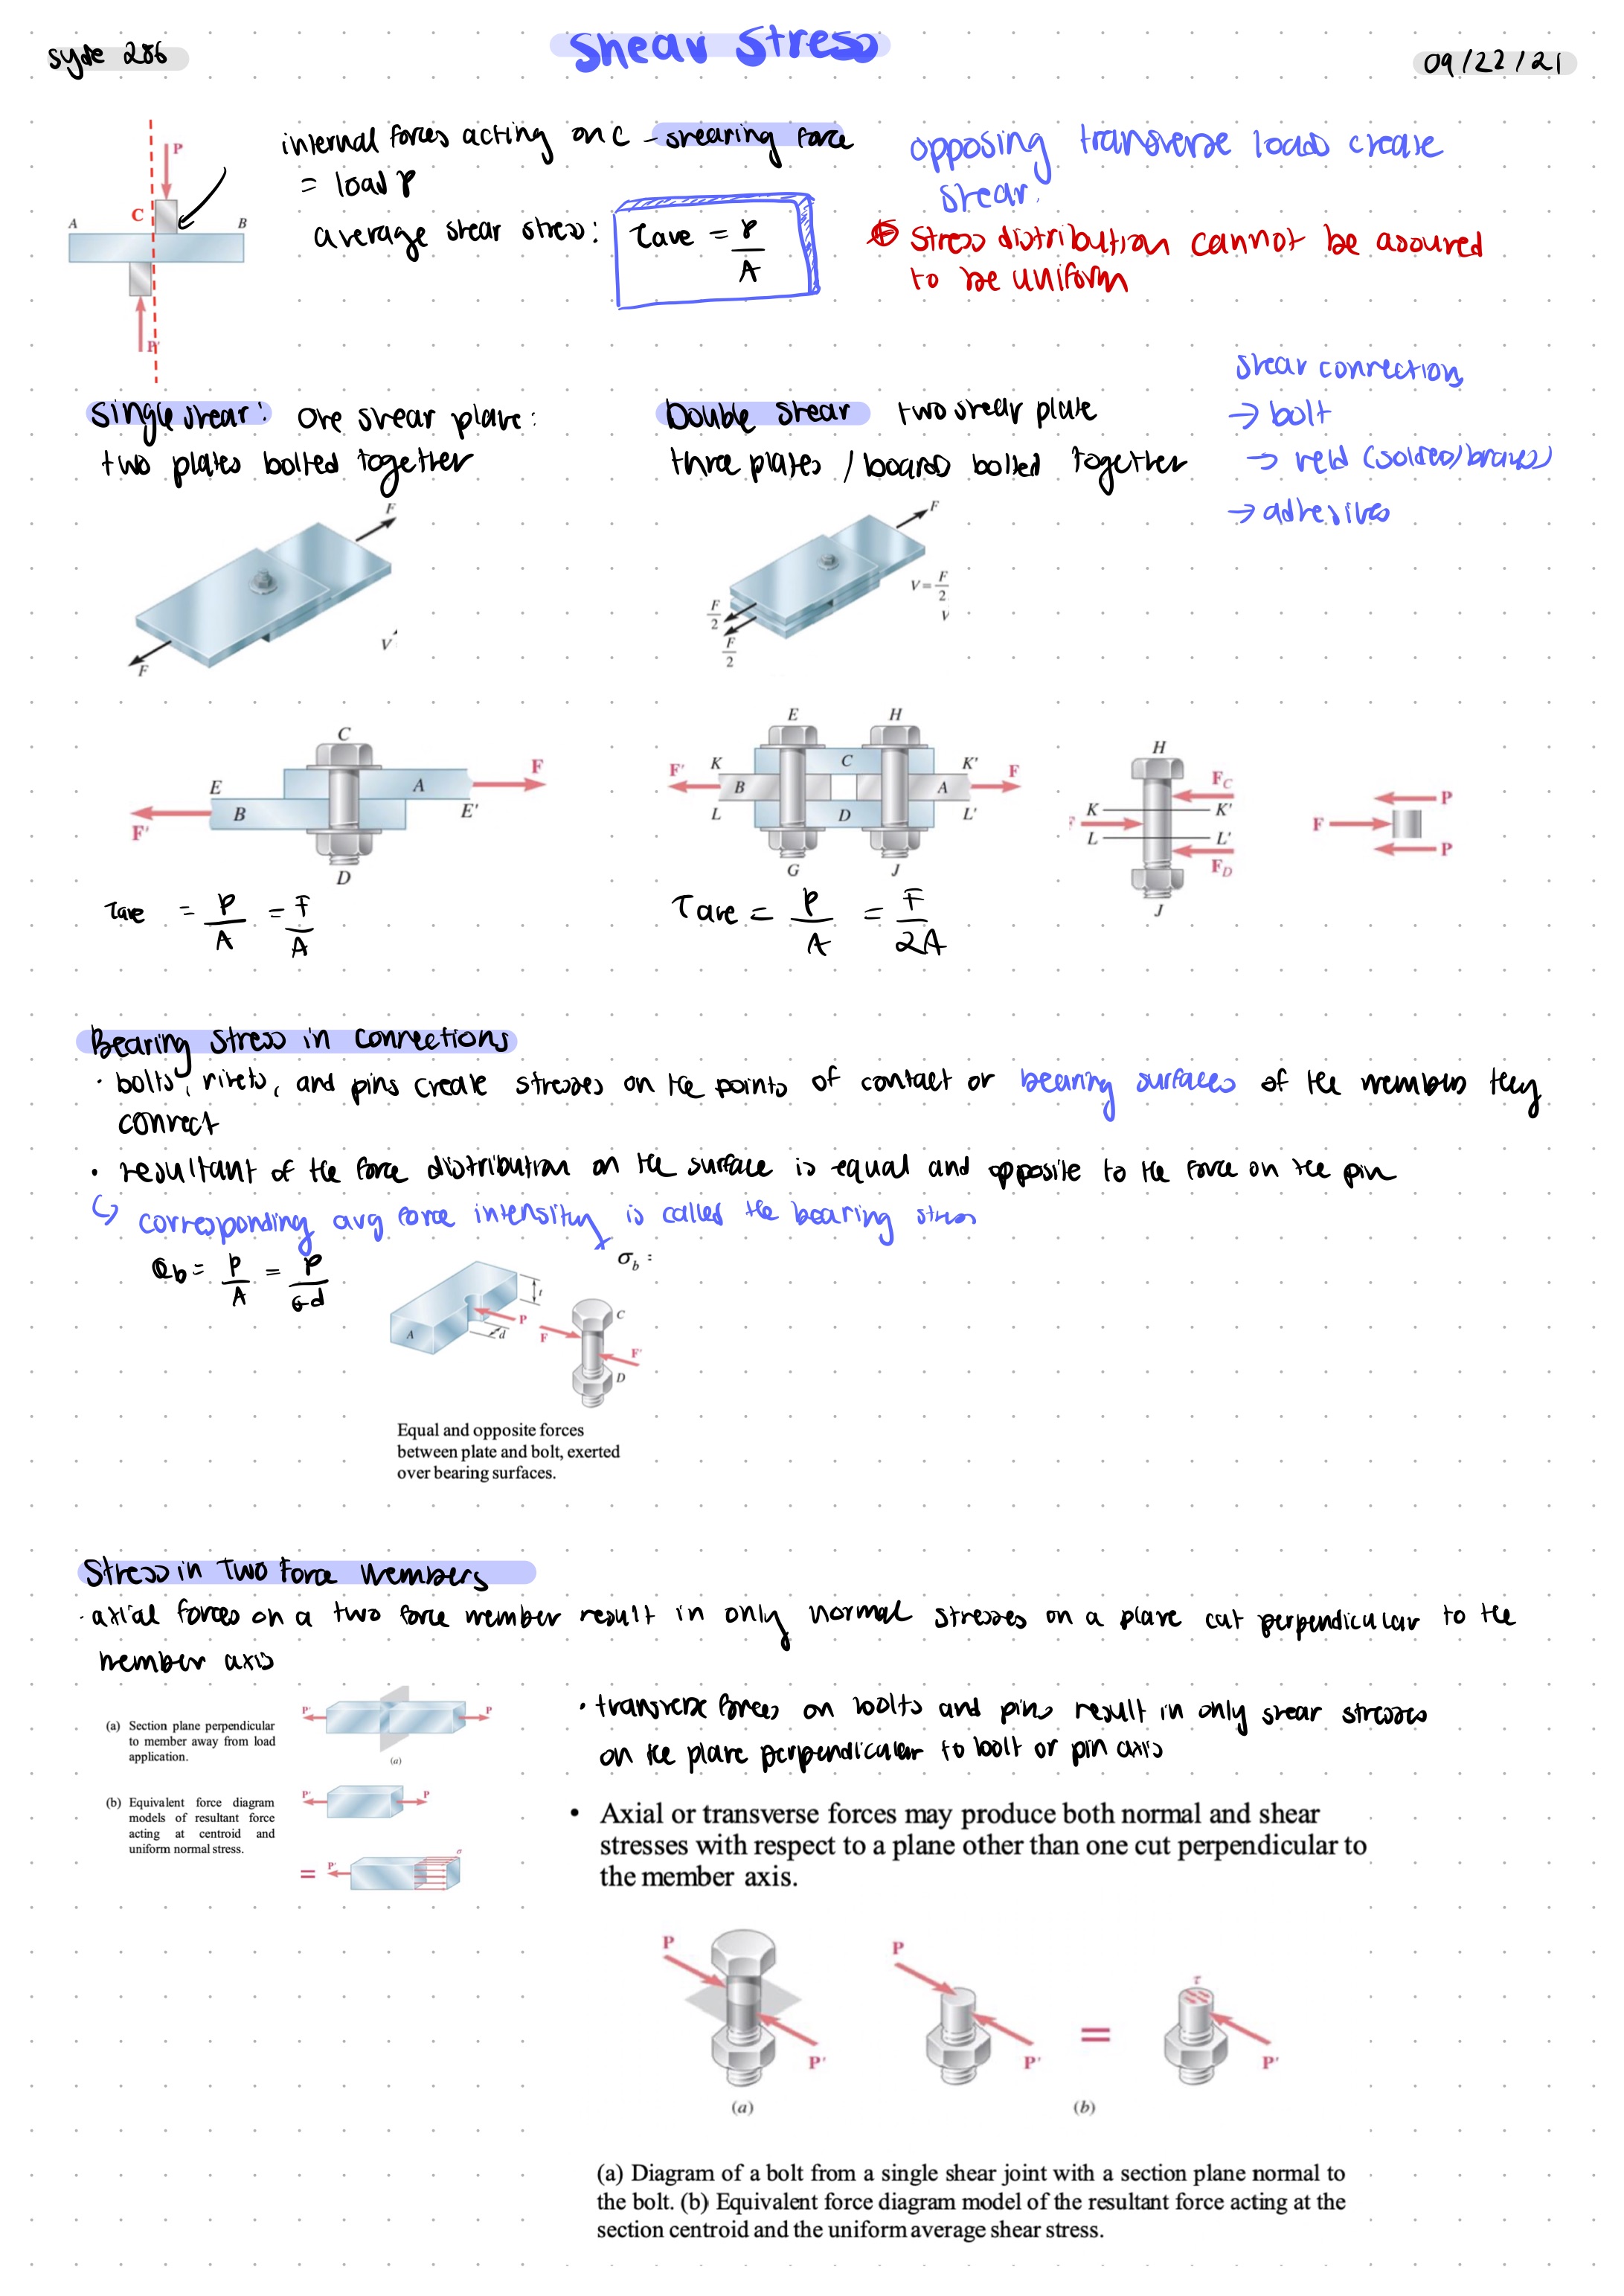 syde 286
Shear Stress
09/22/21
internal forces acting on C - shearing force
= load P
average shear stress: τave = P/A
opposing transverse loads create
shear.
Stress distribution cannot be assured
to be uniform
P
C
A
B
P'
shear connection
→ bolt
→ weld (solder/brazes)
→ adhesives
Single shear: one shear plane:
two plates bolted together
Double Shear two shear plane
three plates / boards bolted together
F
F
V
F
F/2
F/2
V = F/2
V
C
F
E
A
B
E'
F'
D
E
H
F'
K
C
K'
F
B
A
L
D
L'
G
J
H
FC
K
K'
F
L
L'
FD
J
P
F
P
τave = P/A = F/A
τave = P/A = F/2A
Bearing Stress in Connections
· bolts, rivets, and pins create stresses on the points of contact or bearing surfaces of the members they
connect
· resultant of the force distribution on the surface is equal and opposite to the force on the pin
↳ corresponding avg force intensity is called the bearing stress
σb =
t
C
P
A
d
F
F'
D
Equal and opposite forces
between plate and bolt, exerted
over bearing surfaces.
Stress in Two Force Members
· axial forces on a two force member result in only normal stresses on a plane cut perpendicular to the
member axis
P'
P
(a) Section plane perpendicular
to member away from load
application.
(a)
(b) Equivalent force diagram
models of resultant force
acting at centroid and
uniform normal stress.
P'
P
=
P'
σ
· transverse forces on bolts and pins result in only shear stresses
on the plane perpendicular to bolt or pin axis
• Axial or transverse forces may produce both normal and shear
stresses with respect to a plane other than one cut perpendicular to
the member axis.
P
P
τ
=
P'
P'
P'
(a)
(b)
(a) Diagram of a bolt from a single shear joint with a section plane normal to
the bolt. (b) Equivalent force diagram model of the resultant force acting at the
section centroid and the uniform average shear stress.